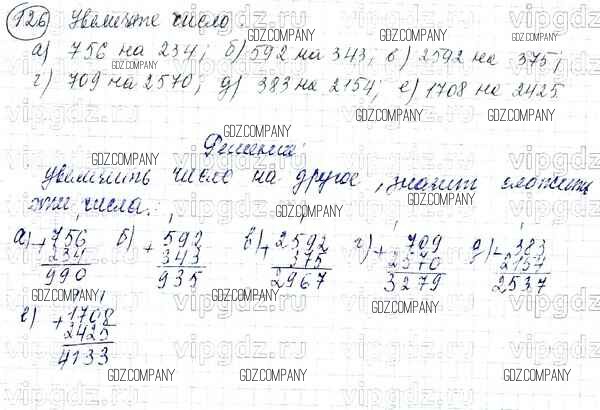 126 Увеличьте число:
а) 756 на 234; б) 592 на 343; в) 2592 на 375;
г) 709 на 2570; д) 383 на 2154; е) 1708 на 2425
GDZ.COMPANY
Решение:
Увеличить число на другое, значит сложить
эти числа.
а) + 756 б) + 592 в) + 2592 г) + 709 д) + 383
234 343 375 2570 2154
990 935 2967 3279 2537
е) + 1708
2425
4133
GDZ.COMPANY
vipgdz.ru